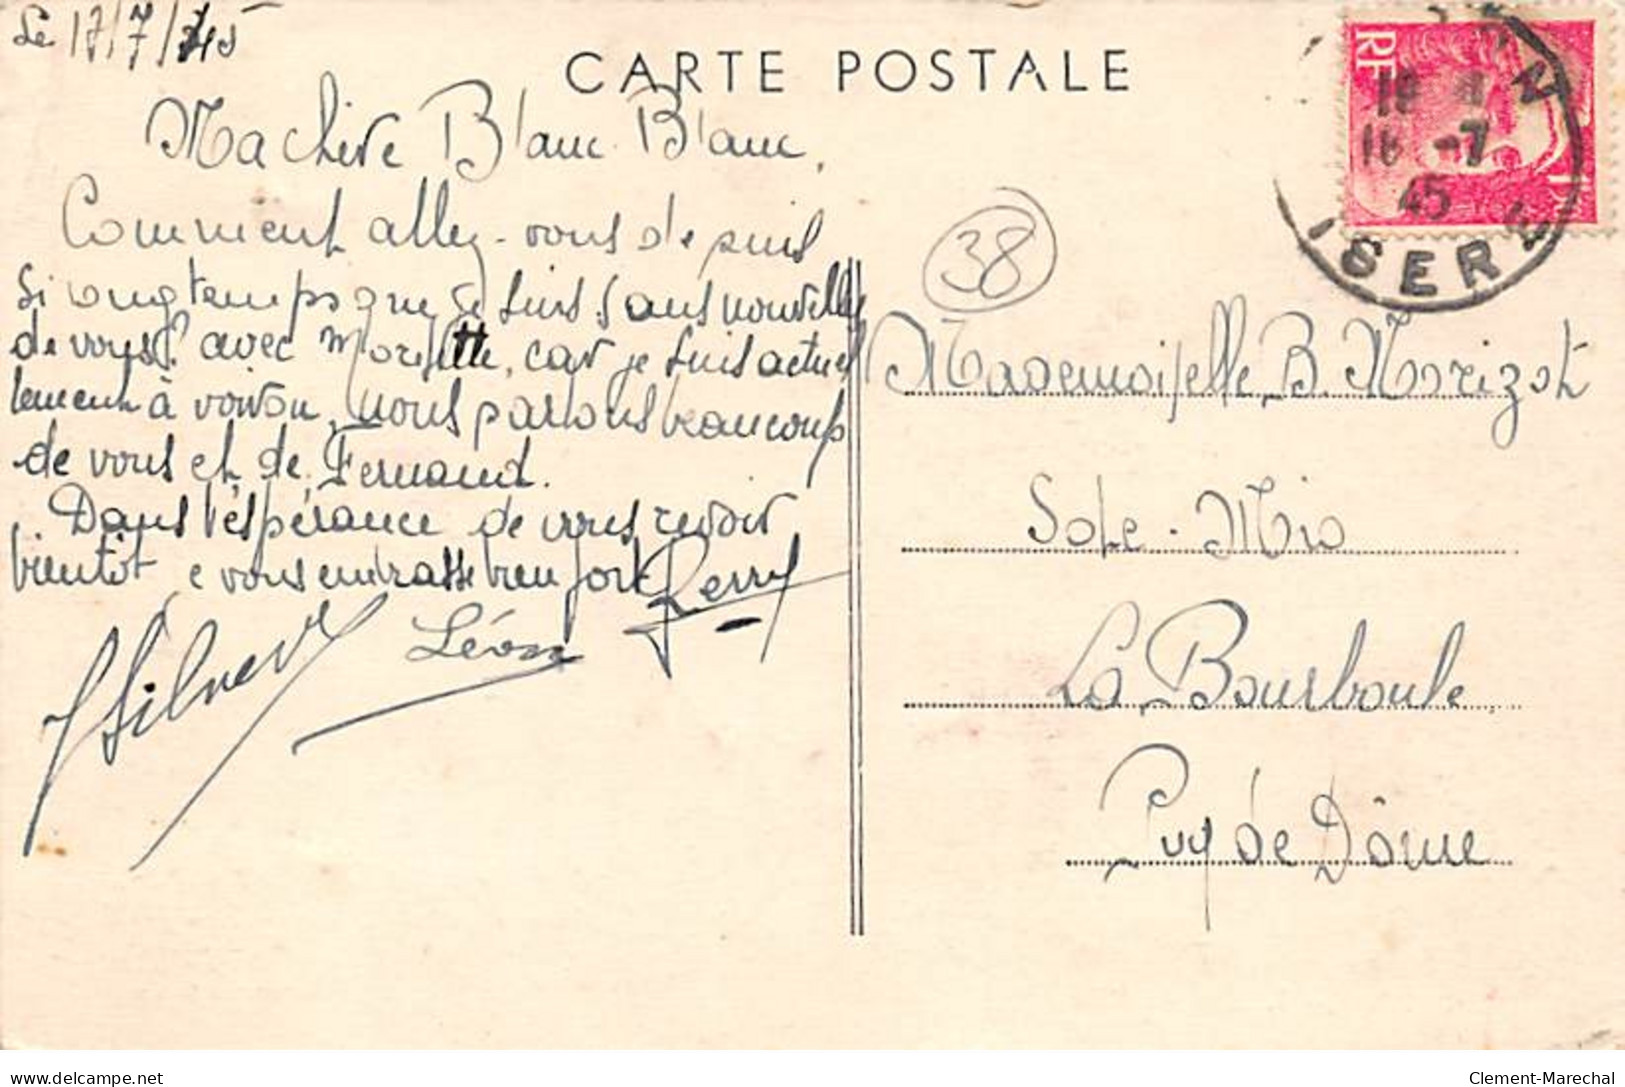 Le 17/7/45
CARTE POSTALE
Ma chère Blanc-Blanc,
Comment allez-vous depuis
si longtemps que je suis sans nouvelles
de vous? avec Morisette, car je suis actuel
lement à Voiron, nous parlons beaucoup
de vous et de Fernand.
Dans l'espérance de vous revoir
bientôt e vous embrasse bien fort
Léon
38
RF
18
16 -7
45
ISERE
Mademoiselle B. Morizot
Sole-Mio
La Bourboule
Puy de Dôme
delcampe.net
Clement-Marechal